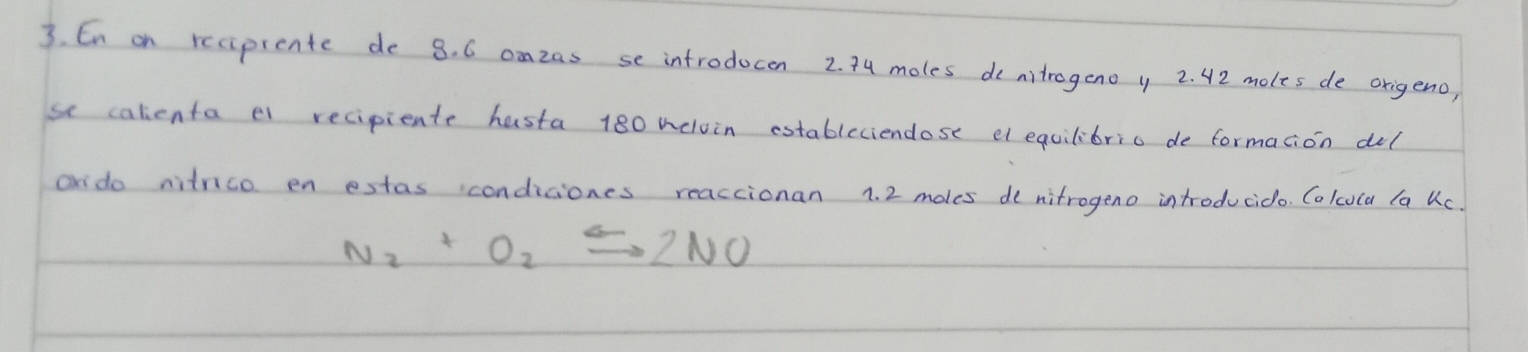 3. En on recipiente de 8.6 onzas se introducen 2.74 moles de nitrogeno y 2.42 moles de oxigeno,
se calienta el recipiente hasta 180 kelvin estableciendose el equilibrio de formación del
oxido nitrico en estas condiciones reaccionan 1.2 moles de nitrogeno introducido. Calcula la Kc.
N₂ + O₂ ⇆ 2NO